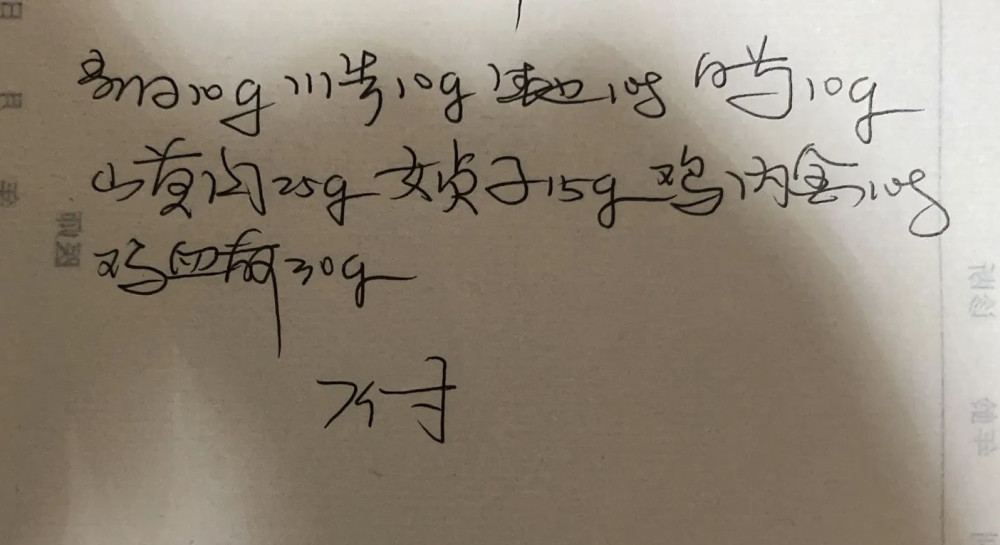 当归10g 川芎10g 10g 白芍10g
山萸肉25g 女贞子15g 鸡内金10g
鸡血藤30g
7付